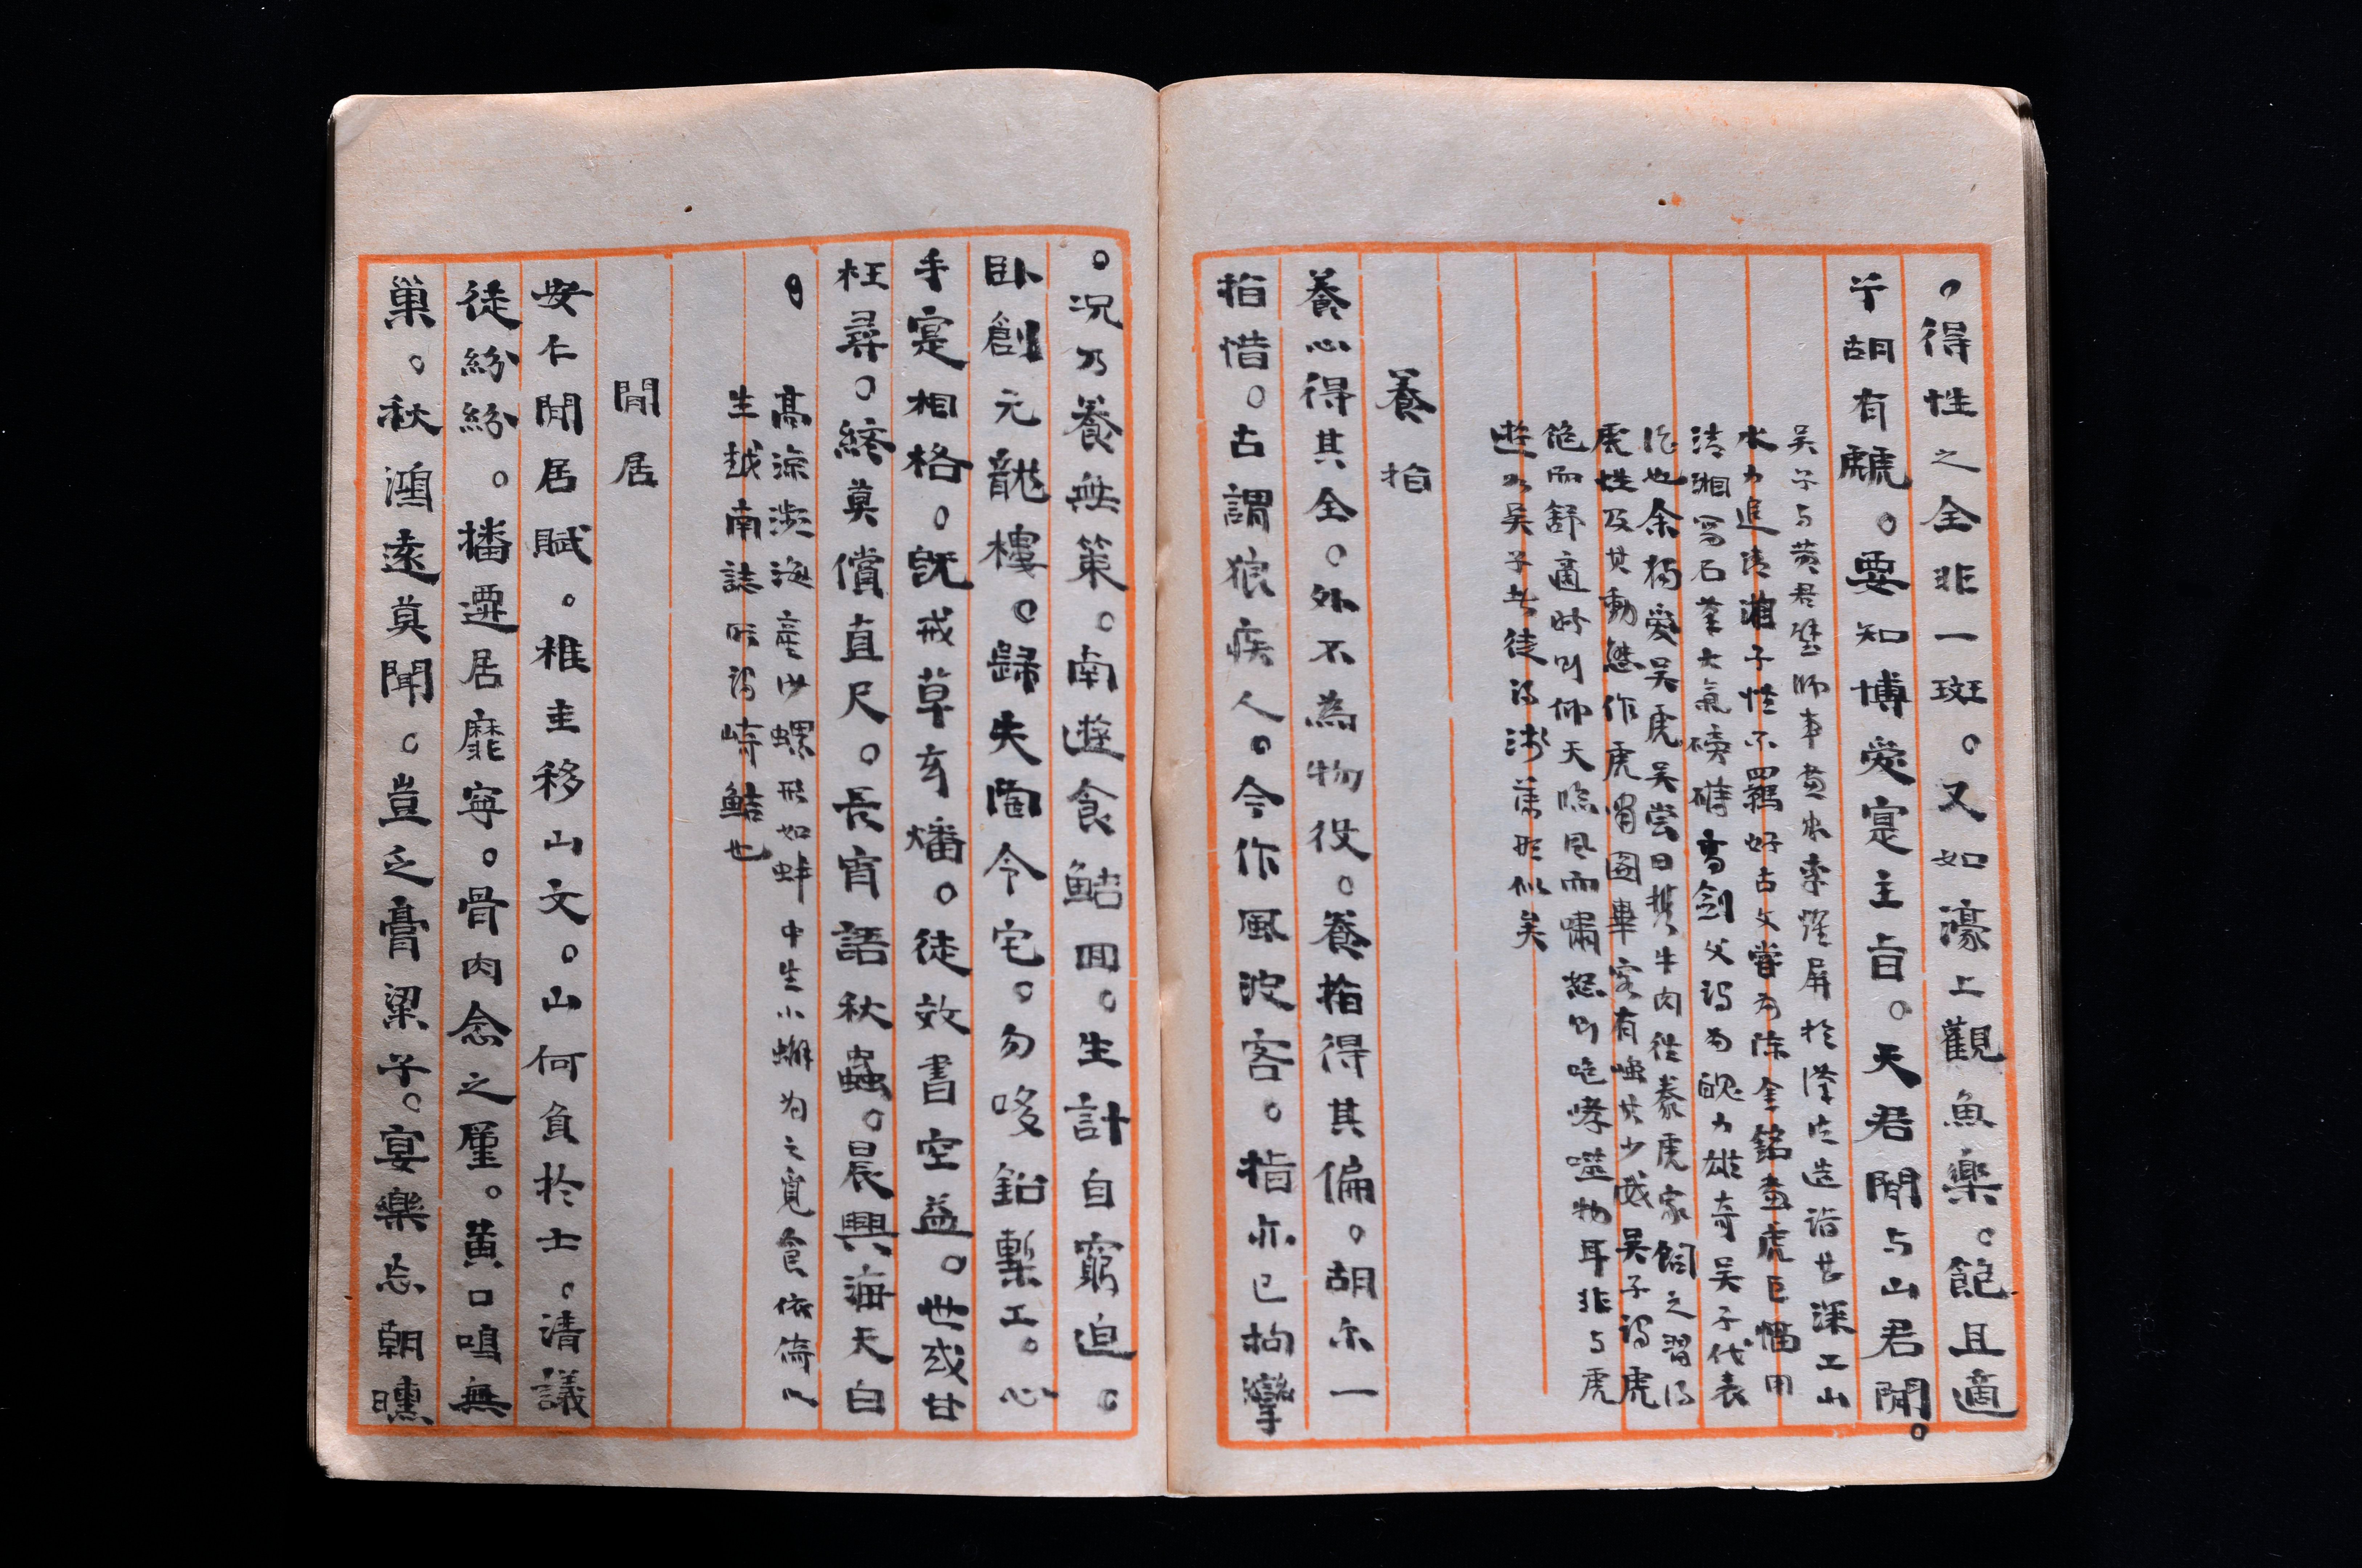 。得性之全非一斑。又如濠上觀魚樂。飽且適
兮胡有虩。要知博愛寔主旨。天君閒与山君閒。
吴子与黄君 師事畫 李耀屏於 造詣甚深工山
水力追清湘子性不羈好古文嘗為 余銘畫虎巨幅用
清湘寫石筆大氣磅礴高剑父謂為魄力雄奇吴子代表
作也余獨愛吴虎吴嘗日携牛肉往 虎家飼之習得
虎性及其動態作虎 图畢客有 其少威吴子謂虎
飽而舒適時則仰天臨風而嘯怒則咆哮噬物耳非与虎
遊如吴子者徒得 形似矣
養指
養心得其全。外不為物役。養指得其偏。胡尔一
指惜。古謂狼疾人。今作風波客。指亦已拘攣
。况乃養無策。南遊食鮚回。生計自窮迫。
卧創元龍樓。歸失陶令宅。勿嗟鉛槧工。心
手寔相格。既戒草玄燔。徒效書空益。世或甘
枉尋。終莫償直尺。長宵語秋蟲。晨興海天白
。高涂濒海產沙螺形如蚌中生小蠏为之覓食依倚以
生越南誌所謂𤦺鮚也
閒居
安仁閒居賦。稚圭移山文。山何負於士。清議
徒紛紛。播遷居靡寧。骨肉念之厪。黄口鳴無
巢。秋鴻遠莫聞。豈乏膏粱子。宴樂忘朝曛